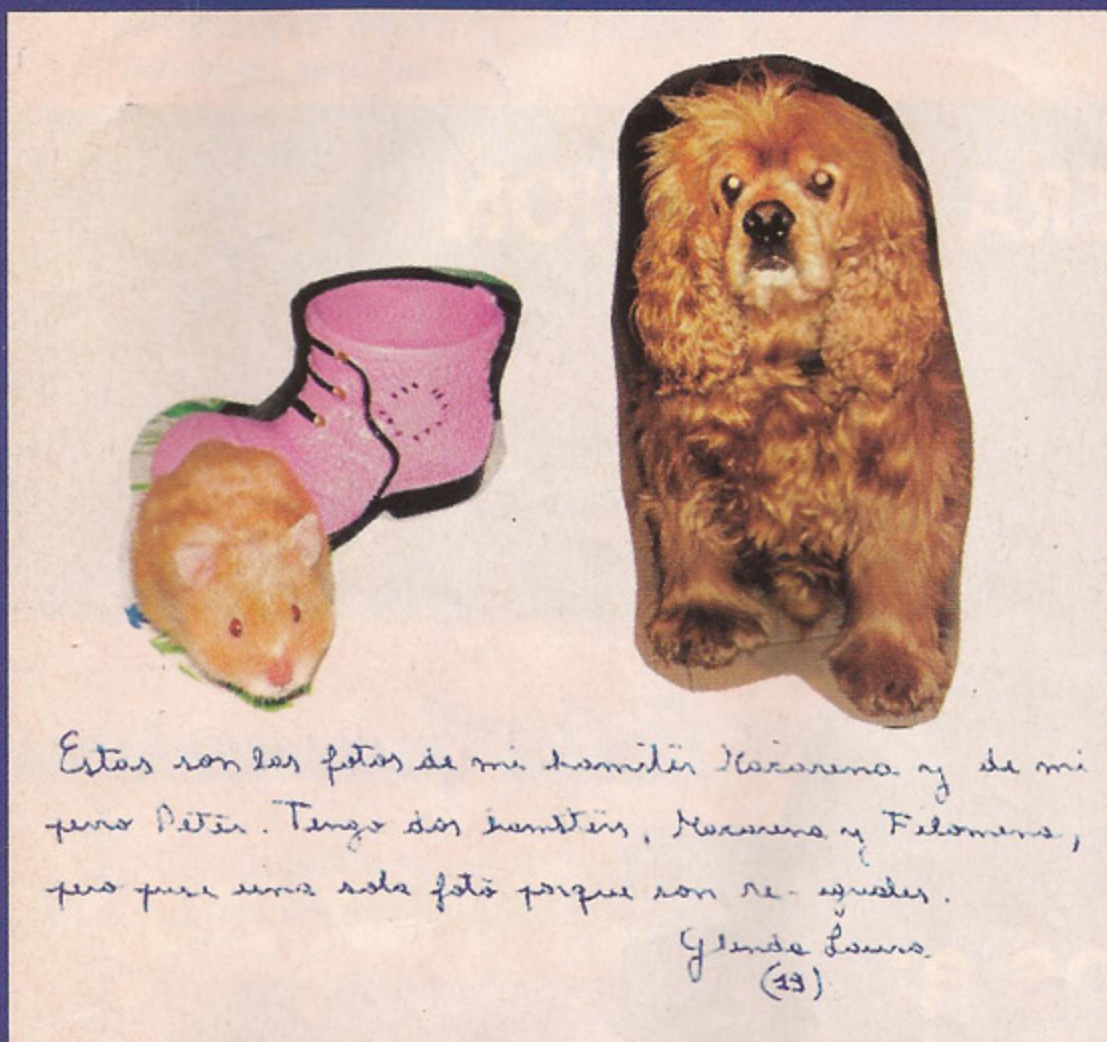 Estas son las fotos de mi hamster Macarena y de mi
perro Peter. Tengo dos hamsters, Macarena y Filomena,
pero puse una sola foto porque son re-iguales.
Glenda Laura
(13)